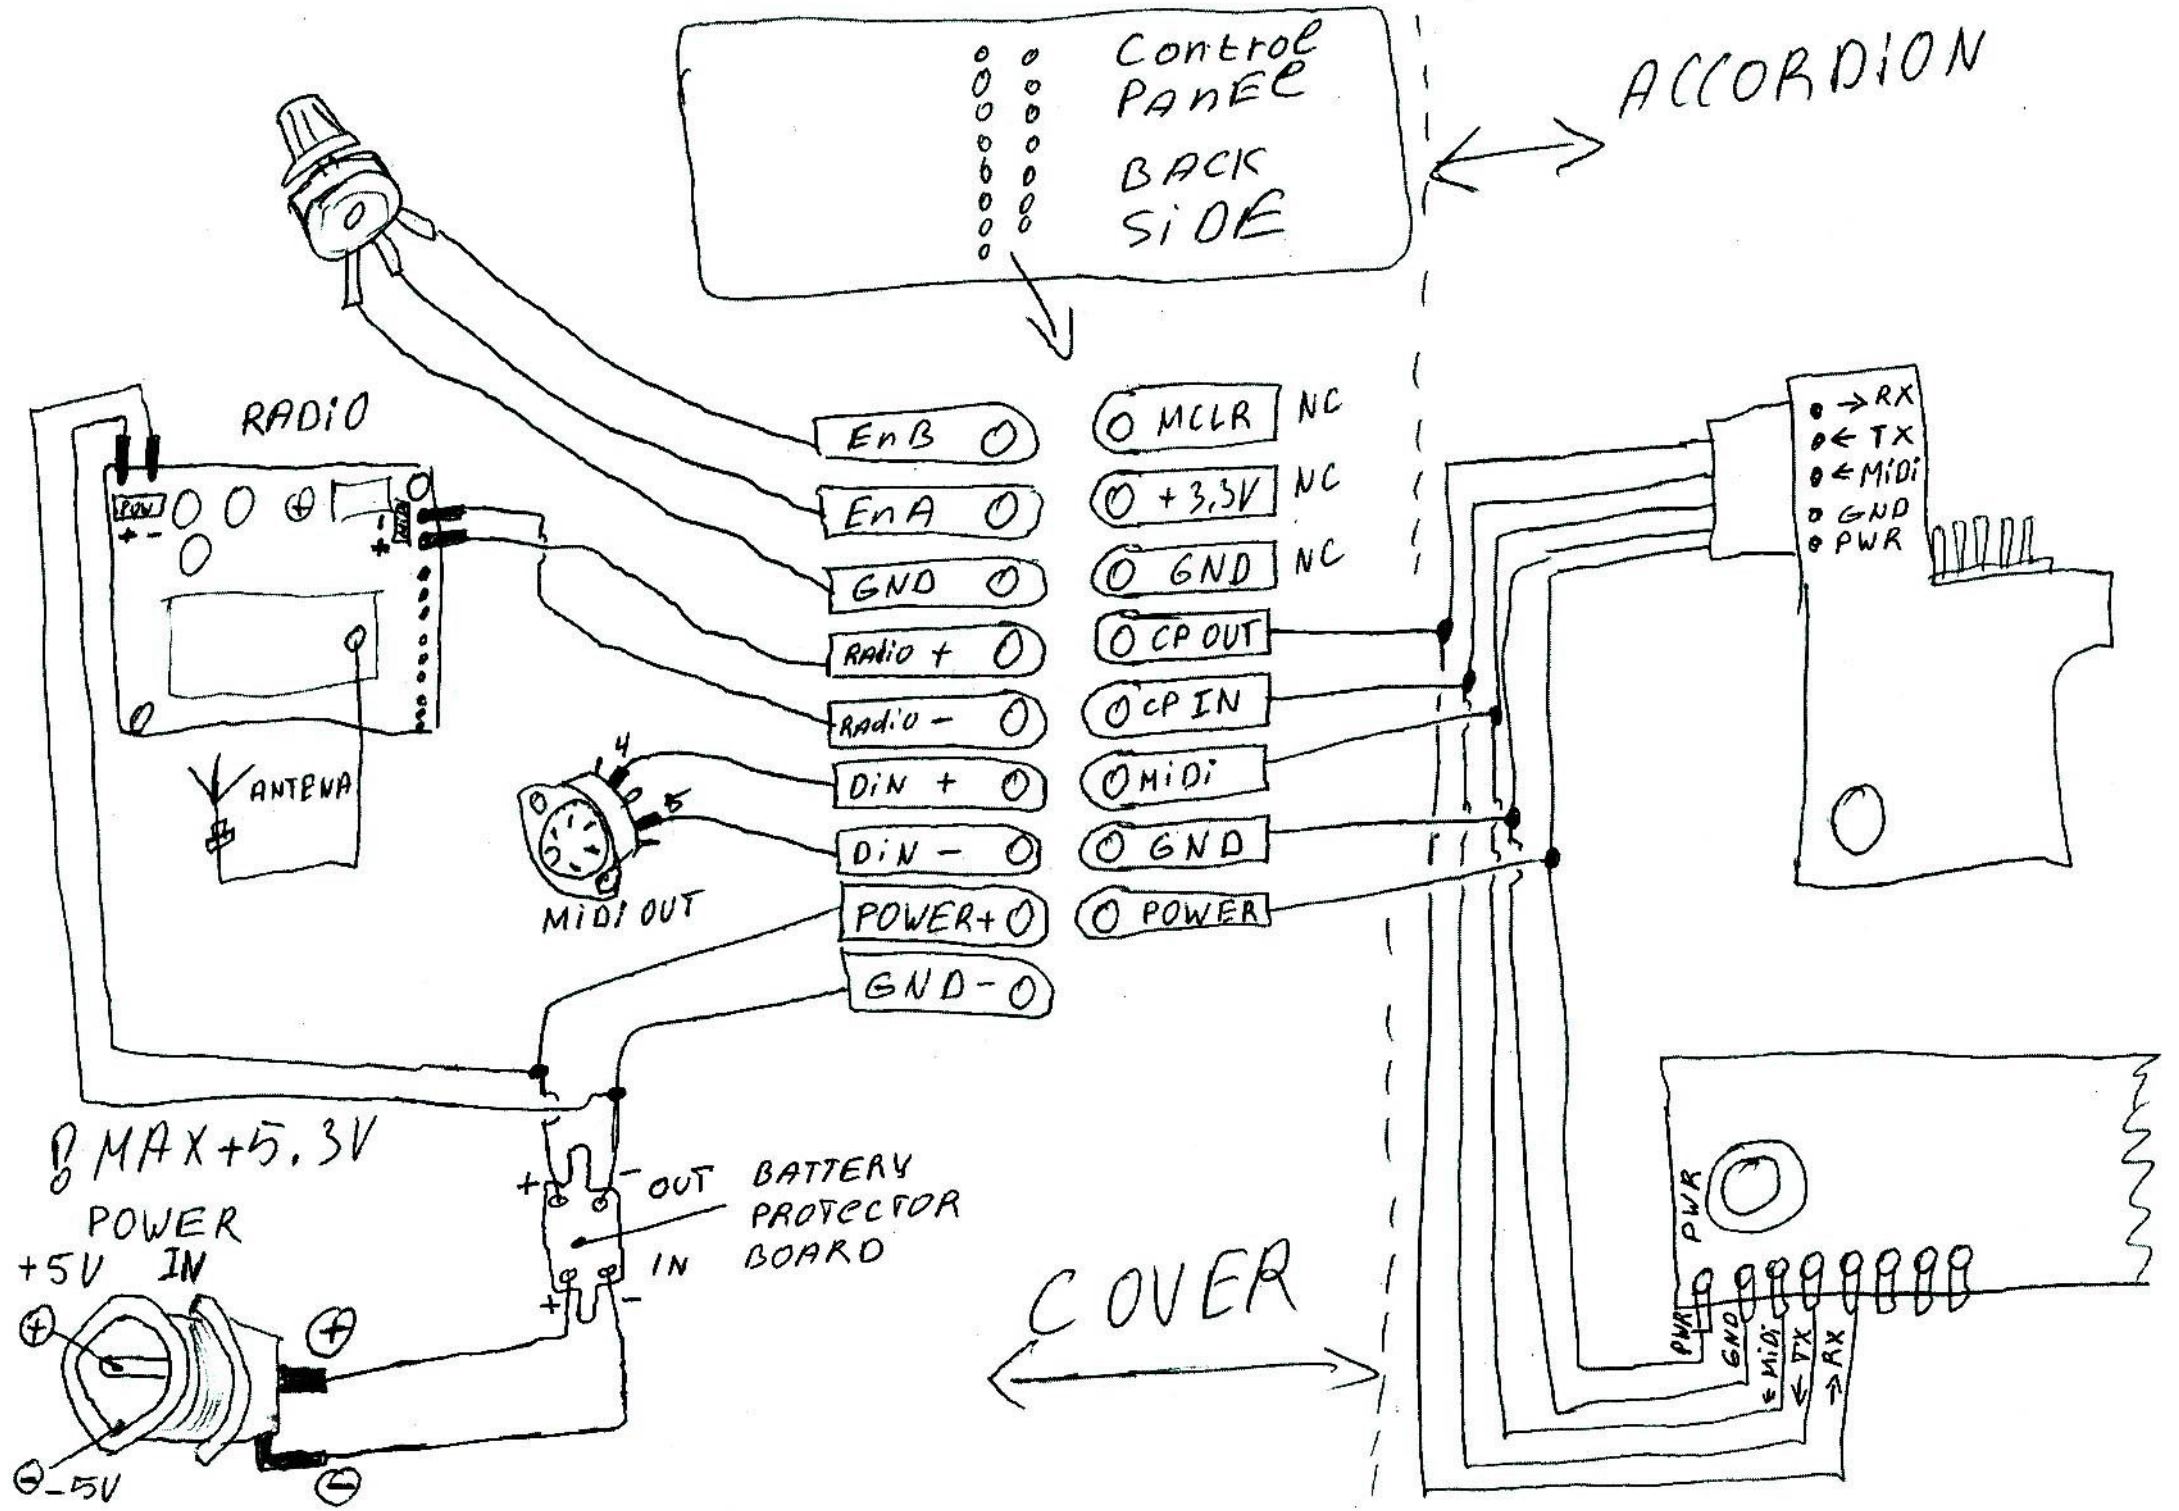 Control
PANEL
BACK
SIDE
ACCORDION
RADIO
POW
+ -
-
+
ANTENA
EnB
EnA
GND
RAdio +
RAdio -
DIN +
DIN -
POWER+
GND-
MCLR NC
+3,3V NC
GND NC
CP OUT
CP IN
MIDI
GND
POWER
→ RX
← TX
← MIDI
GND
PWR
4
5
MIDI OUT
! MAX+5.3V
POWER
IN
+5V
+
-
-5V
+
-
+ - OUT
BATTERY
PROTECTOR
BOARD
+ - IN
COVER
PWR
PWR
GND
← MIDI
← TX
→ RX